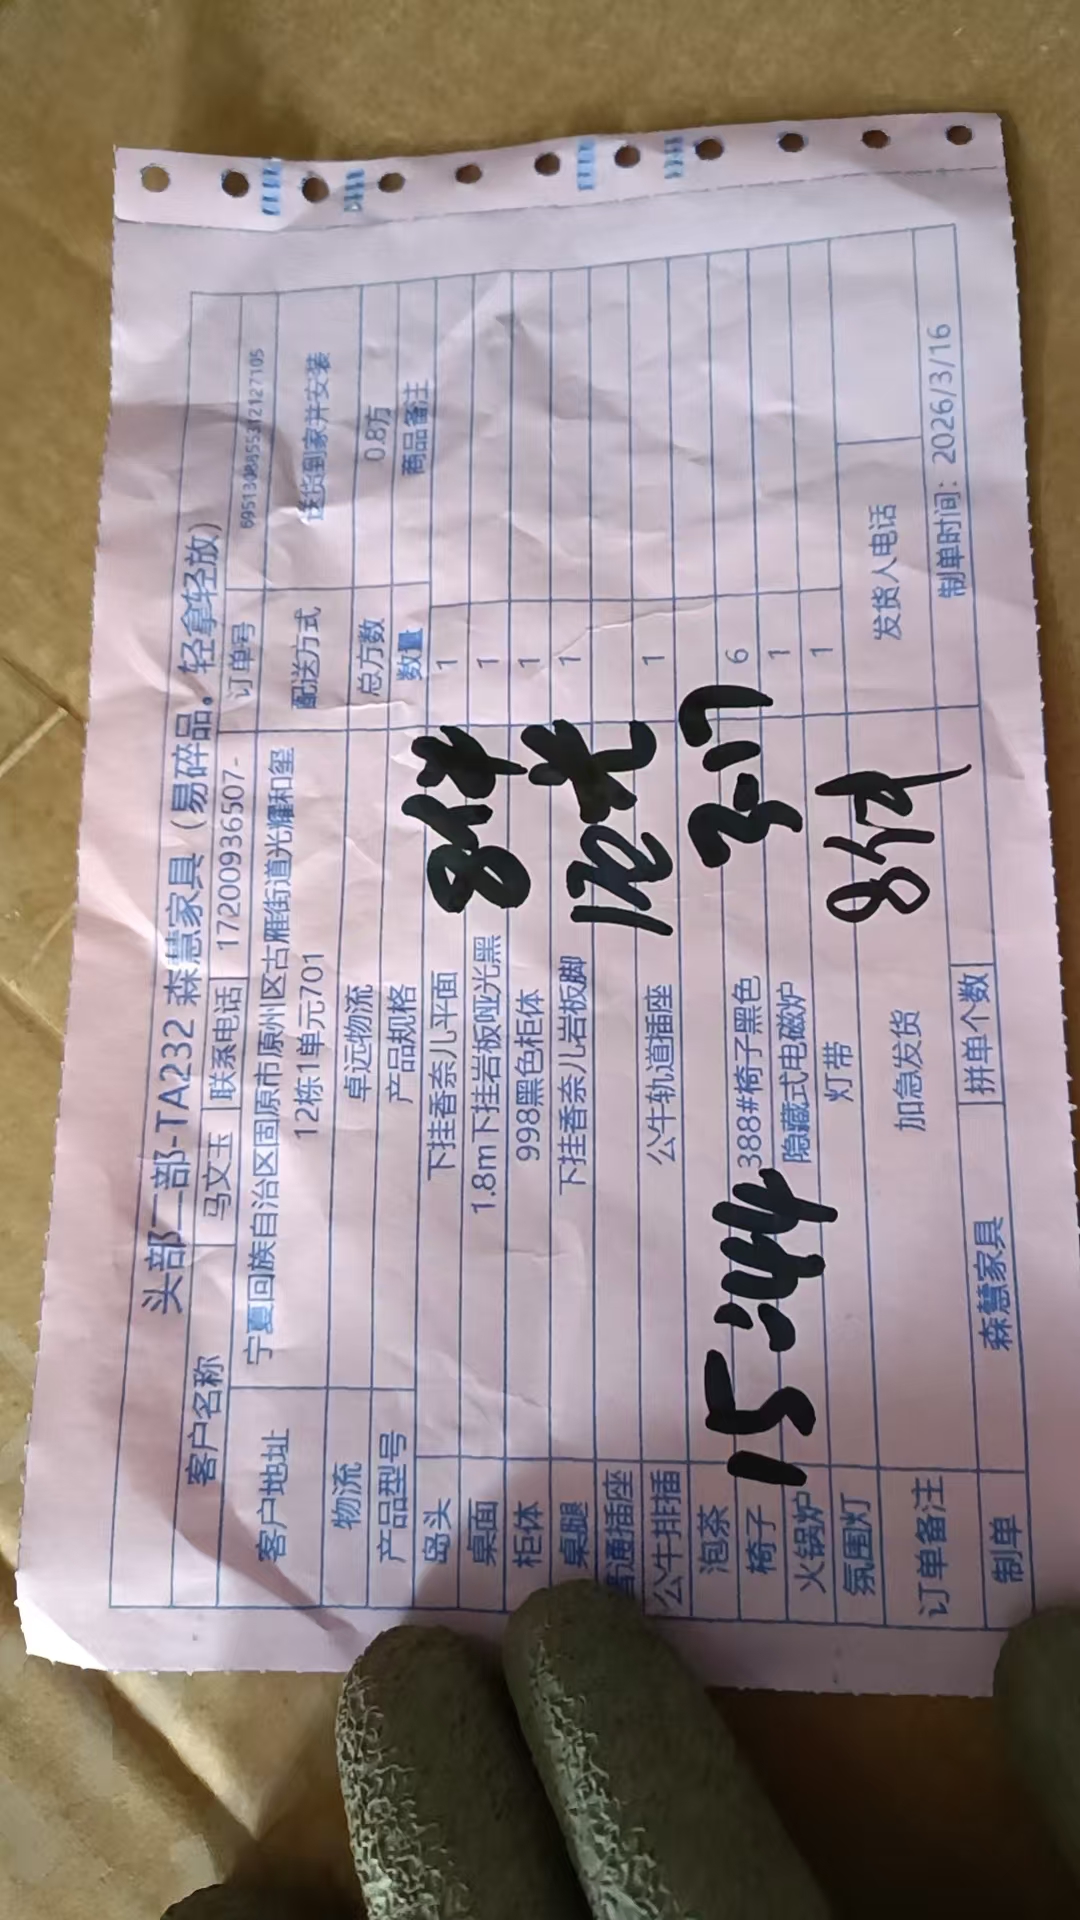 头部二部-TA232 森慧家具（易碎品。轻拿轻放）
客户名称 马文玉 联系电话 17200936507- 订单号 6951308855312127105
客户地址 宁夏回族自治区固原市原州区古雁街道光耀和玺12栋1单元701 配送方式 送货到家并安装
物流 卓远物流 总方数 0.8方
产品型号 产品规格 数量 商品备注
岛头 下挂香奈儿平面 1
桌面 1.8m下挂岩板哑光黑 1
柜体 998黑色柜体 1
桌腿 下挂香奈儿岩板脚 1
普通插座
公牛排插 公牛轨道插座 1
泡茶
椅子 388#椅子黑色 6
火锅炉 隐藏式电磁炉 1
氛围灯 灯带 1
订单备注 加急发货 发货人电话
制单 森慧家具 拼单个数 制单时间：2026/3/16
8件
8件